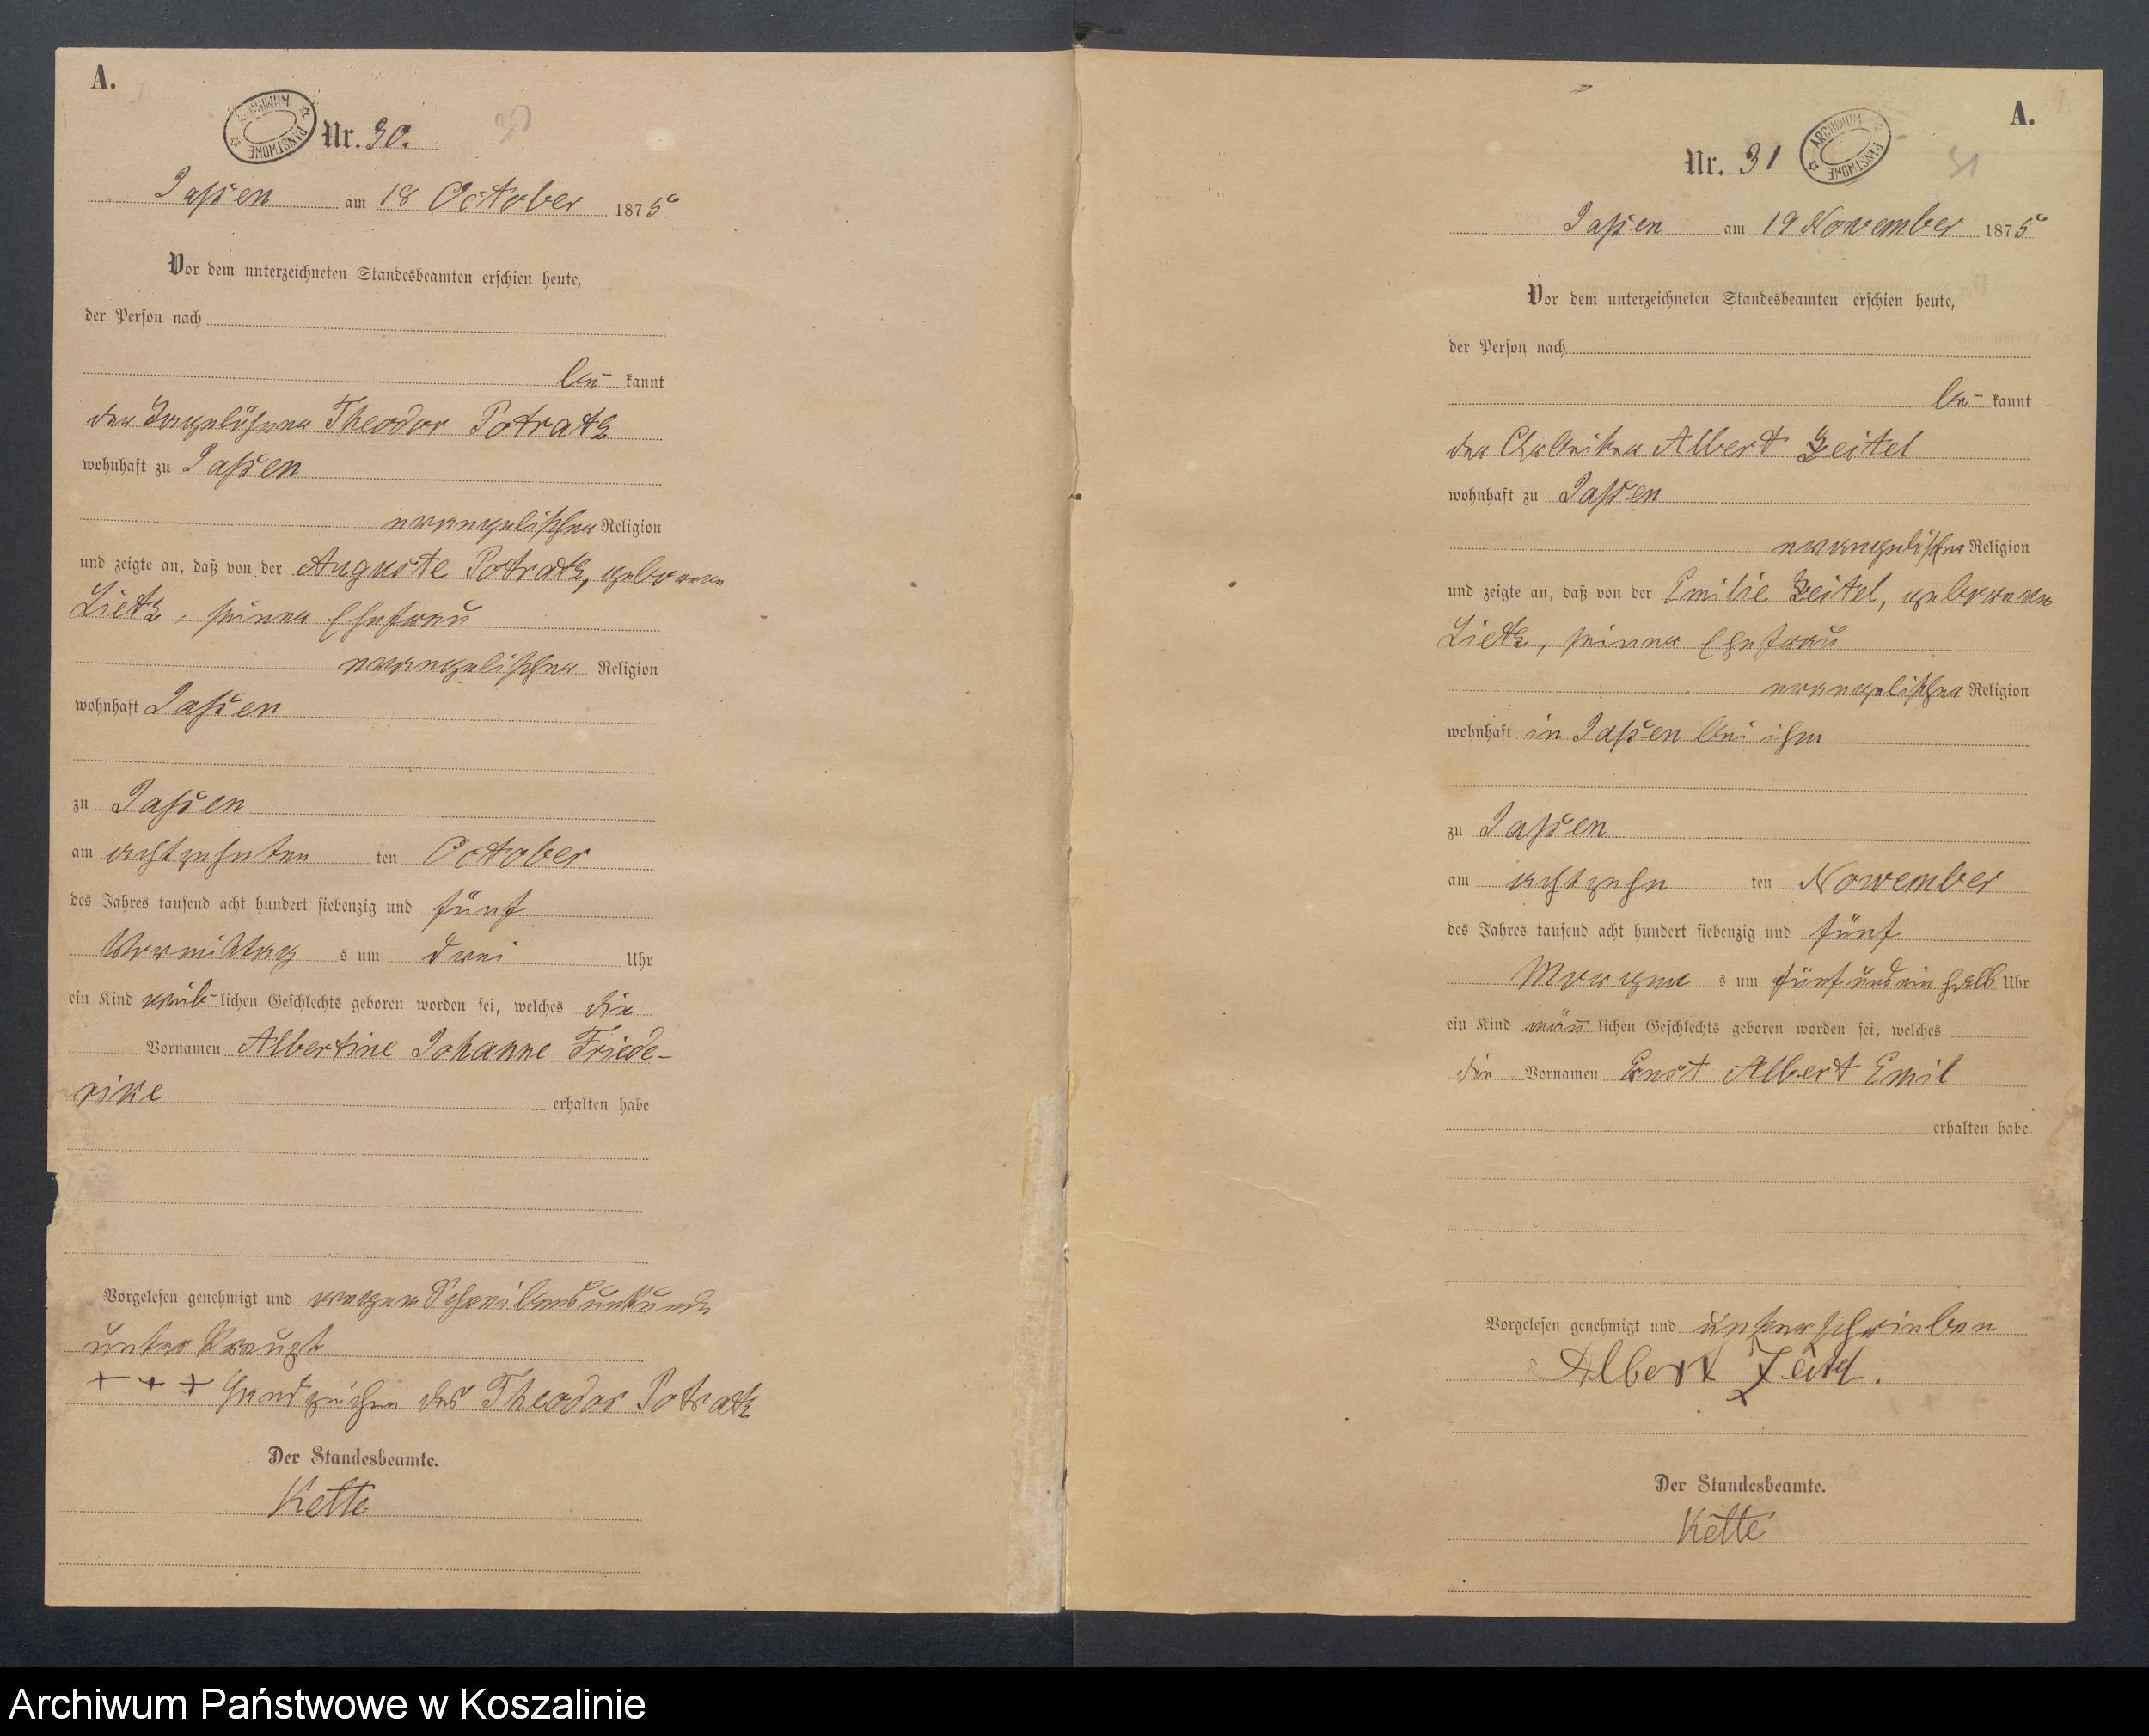 A.
ARCHIWUM PAŃSTWOWE
Nr. 30.
30
Jassen am 18 October 1875
Vor dem unterzeichneten Standesbeamten erschien heute,
der Person nach
be- kannt
der Tagelöhner Theodor Potratz
wohnhaft zu Jassen
evangelischer Religion
und zeigte an, daß von der Auguste Potratz, geborene
Lietz, seiner Ehefrau
evangelischer Religion
wohnhaft Jassen
zu Jassen
am achtzehnten ten October
des Jahres tausend acht hundert siebenzig und fünf
Vormittag s um drei Uhr
ein Kind weib- lichen Geschlechts geboren worden sei, welches die
Vornamen Albertine Johanne Friede-
rike erhalten habe
Vorgelesen genehmigt und wegen Schreibensunkunde
unterkreuzt
+ + + Handzeichen des Theodor Potratz
Der Standesbeamte.
Kette
A.
Nr. 31
ARCHIWUM PAŃSTWOWE
31
Jassen am 19 November 1875
Vor dem unterzeichneten Standesbeamten erschien heute,
der Person nach
be- kannt
der Arbeiter Albert Zeitel
wohnhaft zu Jassen
evangelischer Religion
und zeigte an, daß von der Emilie Zeitel, geborene
Lietz, seiner Ehefrau
evangelischer Religion
wohnhaft in Jassen bei ihm
zu Jassen
am achtzehn ten November
des Jahres tausend acht hundert siebenzig und fünf
Morgen s um fünf und ein halb Uhr
ein Kind männ lichen Geschlechts geboren worden sei, welches
die Vornamen Ernst Albert Emil
erhalten habe
Vorgelesen genehmigt und unterschrieben
Albert Zeitel.
Der Standesbeamte.
Kette
Archiwum Państwowe w Koszalinie